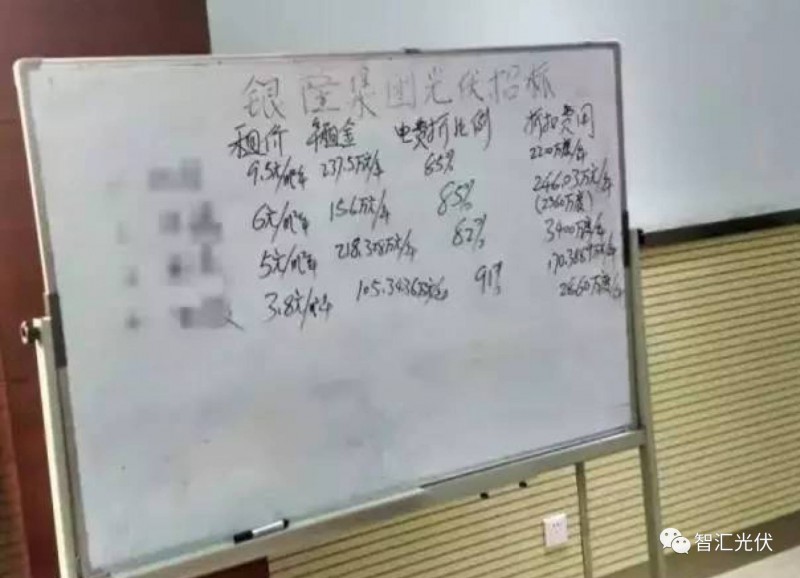 银隆集团光伏招标
租价 租金 电费折比例 折扣费用
9.5元/㎡年 237.5万元/年 65% 2200万度/年
6元/㎡年 156万元/年 85% 246.03万元/年
(2360万度)
5元/㎡年 218.308万元/年 82% 3400万度/年
3.8元/㎡年 105.3436万元/年 91% 170.3889万元/年
2660万度/年
智汇光伏